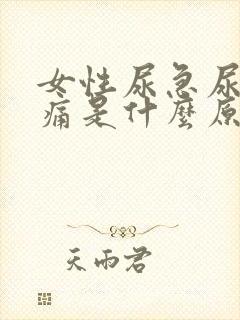 女性尿急尿
痛是什麼原
天雨君